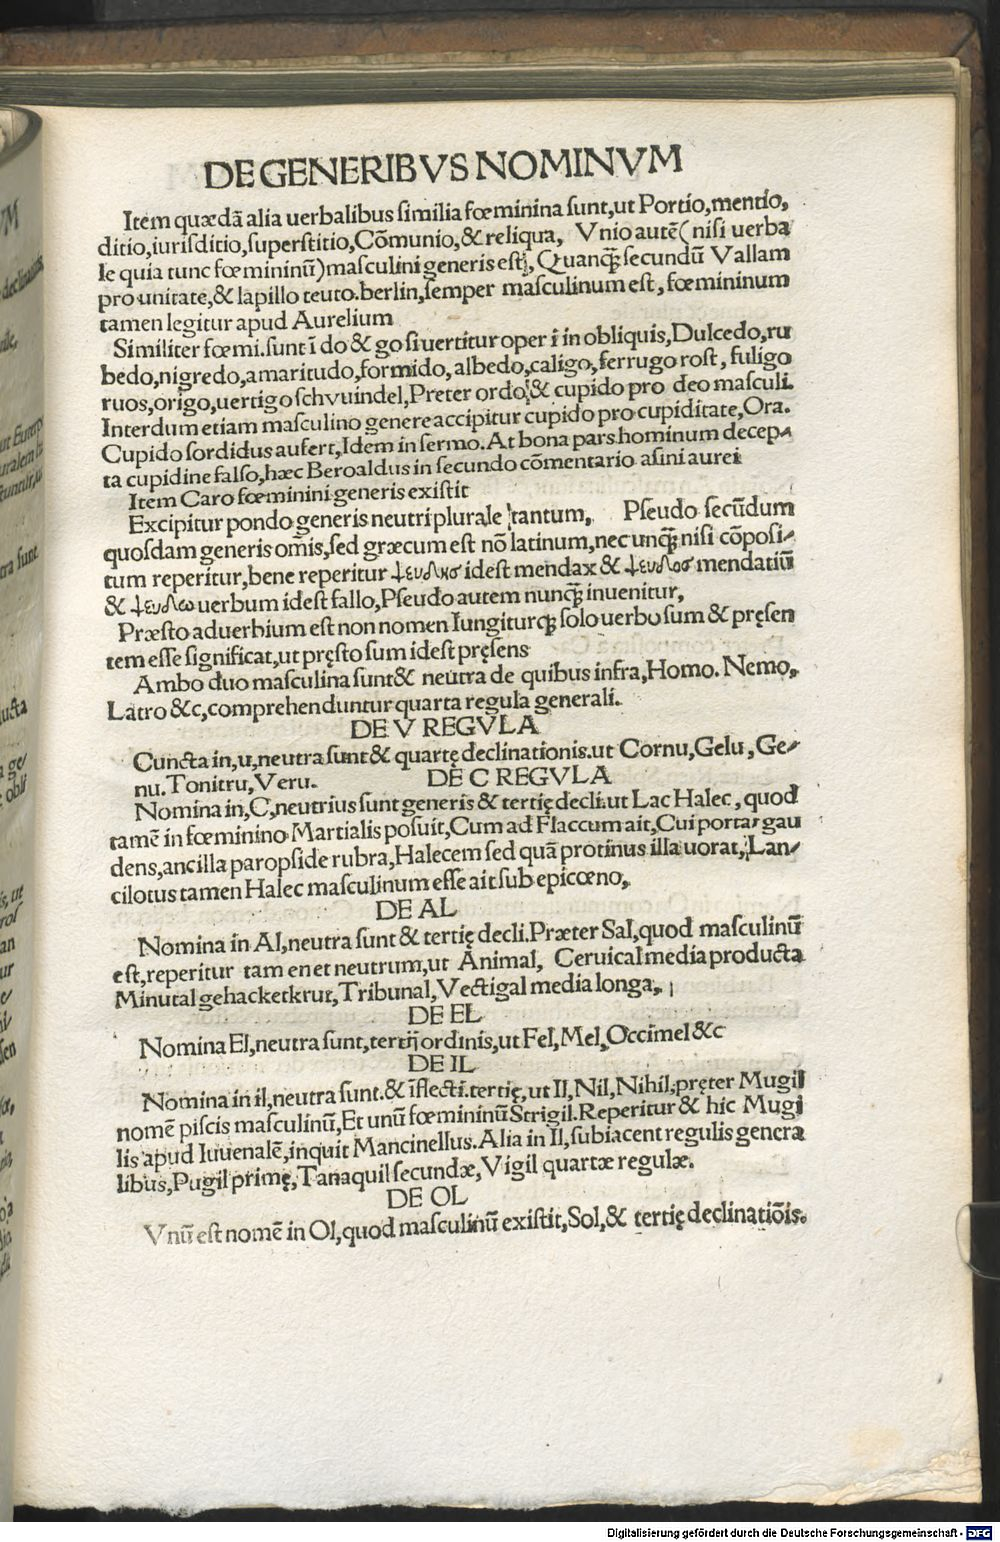 DE GENERIBVS NOMINVM
Item quædã alia uerbalibus similia fœminina sunt,ut Portio,mentio,
ditio,iurisditio,superstitio,Cõmunio,& reliqua, Vnio autẽ( nisi uerba
le quia tunc fœmininũ)masculini generis est, Quanꝙ̃ secundũ Vallam
pro unitate,& lapillo teuto.berlin,semper masculinum est, fœmininum
tamen legitur apud Aurelium
Similiter fœmi.sunt ĩ do & go si uertitur o per i in obliquis,Dulcedo,ru
bedo,nigredo,amaritudo,formido, albedo,caligo,ferrugo rost, fuligo
ruos,origo,uertigo schvuindel,Preter ordo,& cupido pro deo masculi.
Interdum etiam masculino genere accipitur cupido pro cupiditate,Ora.
Cupido sordidus aufert,Idem in sermo.At bona pars hominum decep-
ta cupidine falso,hæc Beroaldus in secundo cõmentario asini aurei
Item Caro fœminini generis existit
Excipitur pondo generis neutri plurale tantum, Pseudo secũdum
quosdam generis om̃is,sed græcum est nõ latinum,nec unꝙ̃ nisi cõposi-
tum reperitur,bene reperitur ψευδησ idest mendax & ψευδοσ mendatiũ
& ψευδω uerbum idest fallo,Pseudo autem nunꝙ̃ inuenitur,
Præsto aduerbium est non nomen Iungiturꝙ solo uerbo sum & pręsen
tem esse significat,ut pręsto sum idest pręsens
Ambo duo masculina sunt & neutra de quibus infra,Homo. Nemo,
Latro &c,comprehenduntur quarta regula generali.
DE V REGVLA
Cuncta in,u,neutra sunt & quartę declinationis.ut Cornu,Gelu,Ge-
nu.Tonitru,Veru. DE C REGVLA
Nomina in,C,neutrius sunt generis & tertię decli:ut Lac Halec, quod
tamẽ in fœminino Martialis posuit,Cum ad Flaccum ait,Cui portat gau
dens,ancilla paropside rubra,Halecem sed quã protinus illa uorat,Lan-
cilotus tamen Halec masculinum esse ait sub epicœno,
DE AL
Nomina in Al,neutra sunt & tertię decli.Præter Sal,quod masculinũ
est,reperitur tam en et neutrum,ut Animal, Ceruical media producta
Minutal gehacketkrut,Tribunal,Vectigal media longa,
DE EL
Nomina El,neutra sunt,tertij ordinis,ut Fel,Mel,Occimel &c
DE IL
Nomina in il,neutra sunt.& ĩflecti.tertię,ut Il,Nil,Nihil,pręter Mugil
nomẽ piscis masculinũ,Et unũ fœmininũ Strigil.Reperitur & hic Mugi
lis apud Iuuenalẽ,inquit Mancinellus.Alia in Il,subiacent regulis genera
libus,Pugil primę,Tanaquil secundæ,Vigil quartæ regulæ.
DE OL
Vnũ est nomẽ in Ol,quod masculinũ existit,Sol,& tertię declinatiõis.
Digitalisierung gefördert durch die Deutsche Forschungsgemeinschaft - DFG